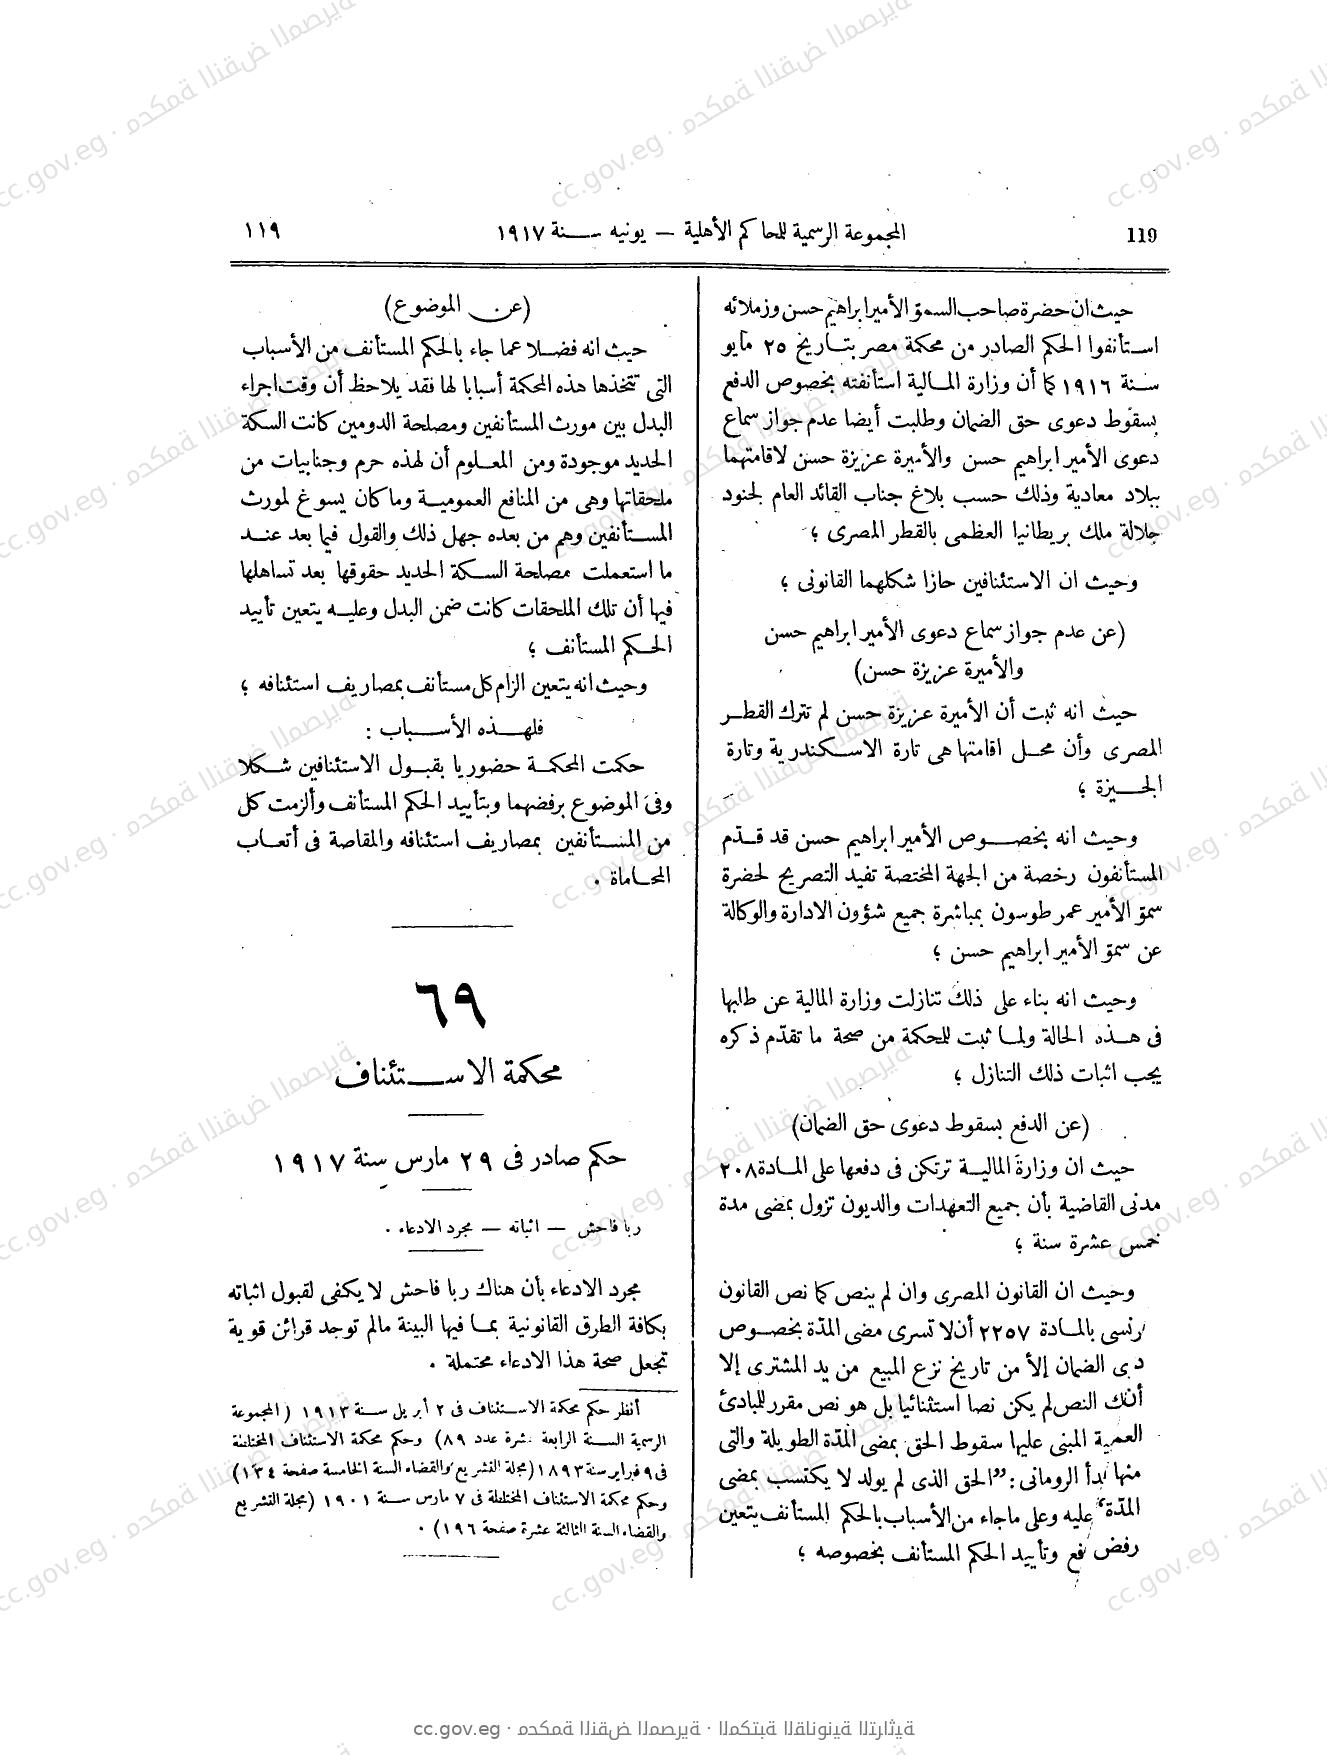 119
المجموعة الرسمية للمحاكم الأهلية — يونيه سنة ١٩١٧
١١٩
حيث ان حضرة صاحب السمو الأمير ابراهيم حسن وزملائه
استأنفوا الحكم الصادر من محكمة مصر بتاريخ ٢٥ مايو
سنة ١٩١٦ كما أن وزارة المالية استأنفته بخصوص الدفع
بسقوط دعوى حق الضمان وطلبت أيضا عدم جواز سماع
دعوى الأمير ابراهيم حسن والأميرة عزيزة حسن لاقامتهما
ببلاد معادية وذلك حسب بلاغ جناب القائد العام لجنود
جلالة ملك بريطانيا العظمى بالقطر المصرى ؛
وحيث ان الاستئنافين حازا شكلهما القانونى ؛
(عن عدم جواز سماع دعوى الأمير ابراهيم حسن
والأميرة عزيزة حسن)
حيث انه ثبت أن الأميرة عزيزة حسن لم تترك القطر
المصرى وأن محل اقامتها هى تارة الاسكندرية وتارة
الجيزة ؛
وحيث انه بخصوص الأمير ابراهيم حسن قد قدّم
المستأنفون رخصة من الجهة المختصة تفيد التصريح لحضرة
سموّ الأمير عمر طوسون بمباشرة جميع شؤون الادارة والوكالة
عن سموّ الأمير ابراهيم حسن ؛
وحيث انه بناء على ذلك تنازلت وزارة المالية عن طلبها
فى هذه الحالة ولما ثبت للمحكمة من صحة ما تقدّم ذكره
يجب اثبات ذلك التنازل ؛
(عن الدفع بسقوط دعوى حق الضمان)
حيث ان وزارة المالية ترتكن فى دفعها على المادة ٢٠٨
مدنى القاضية بأن جميع التعهدات والديون تزول بمضى مدة
خمس عشرة سنة ؛
وحيث ان القانون المصرى وان لم ينص كما نص القانون
رنسى بالمادة ٢٢٥٧ أن لا تسرى مضى المدّة بخصوص
دعوى الضمان إلا من تاريخ نزع المبيع من يد المشترى إلا
أن ذلك النص لم يكن نصا استثنائيا بل هو نص مقرر للبادئ
العمومية المبنى عليها سقوط الحق بمضى المدّة الطويلة والتى
منها مبدأ الرومانى : "الحق الذى لم يولد لا يكتسب بمضى
المدّة" عليه وعلى ما جاء من الأسباب بالحكم المستأنف يتعين
رفض الدفع وتأييد الحكم المستأنف بخصوصه ؛
(عن الموضوع)
حيث انه فضلا عما جاء بالحكم المستأنف من الأسباب
التى تتخذها هذه المحكمة أسبابا لها فقد يلاحظ أن وقت اجراء
البدل بين مورث المستأنفين ومصلحة الدومين كانت السكة
الحديد موجودة ومن المعلوم أن لهذه حرم وجنابيات من
ملحقاتها وهى من المنافع العمومية وما كان يسوغ لمورث
المستأنفين وهم من بعده جهل ذلك والقول فيما بعد عند
ما استعملت مصلحة السكة الحديد حقوقها بعد تساهلها
فيها أن تلك الملحقات كانت ضمن البدل وعليه يتعين تأييد
الحكم المستأنف ؛
وحيث انه يتعين الزام كل مستأنف بمصاريف استئنافه ؛
فلهذه الأسباب :
حكمت المحكمة حضوريا بقبول الاستئنافين شكلا
وفى الموضوع برفضهما وبتأييد الحكم المستأنف وألزمت كل
من المستأنفين بمصاريف استئنافه والمقاصة فى أتعاب
المحاماة .
٦٩
محكمة الاستئناف
حكم صادر فى ٢٩ مارس سنة ١٩١٧
ربا فاحش — اثباته — مجرد الادعاء .
مجرد الادعاء بأن هناك ربا فاحش لا يكفى لقبول اثباته
بكافة الطرق القانونية بما فيها البينة مالم توجد قرائن قوية
تجعل صحة هذا الادعاء محتملة .
أنظر حكم محكمة الاستئناف فى ٢ أبريل سنة ١٩١٣ (المجموعة
الرسمية السنة الرابعة عشرة عدد ٨٩) وحكم محكمة الاستئناف المختلطة
فى ٩ فبراير سنة ١٨٩٣ (مجلة التشريع والقضاء السنة الخامسة صفحة ١٣٤)
وحكم محكمة الاستئناف المختلطة فى ٧ مارس سنة ١٩٠١ (مجلة التشريع
والقضاء السنة الثالثة عشرة صفحة ١٩٦) .
cc.gov.eg · محكمة النقض المصرية · المكتبة القانونية التراثية